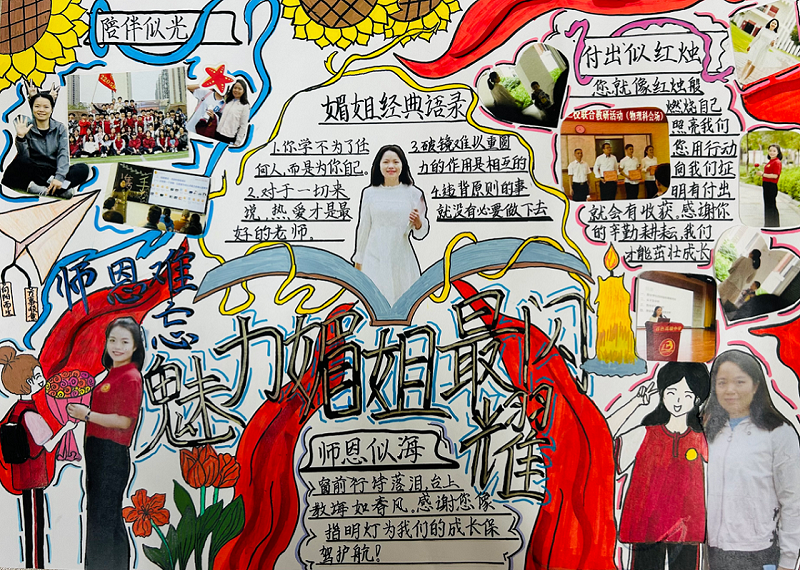 陪伴似光
媚姐经典语录
1.你学不为了任
何人,而是为你自己。
2.对于一切来
说,热爱才是最
好的老师。
3.破镜难以重圆
力的作用是相互的
4.违背原则的事
就没有必要做下去
付出似红烛
您就像红烛般
燃烧自己
照亮我们
您用行动
向我们证
明有付出
就会有收获,感谢你
的辛勤耕耘,我们
才能茁壮成长
联合教研活动(物理科会场)
师恩难忘
魅力媚姐最闪耀
师恩似海
窗前行持落泪,台上
教诲如春风。感谢您像
指明灯为我们的成长保
驾护航!